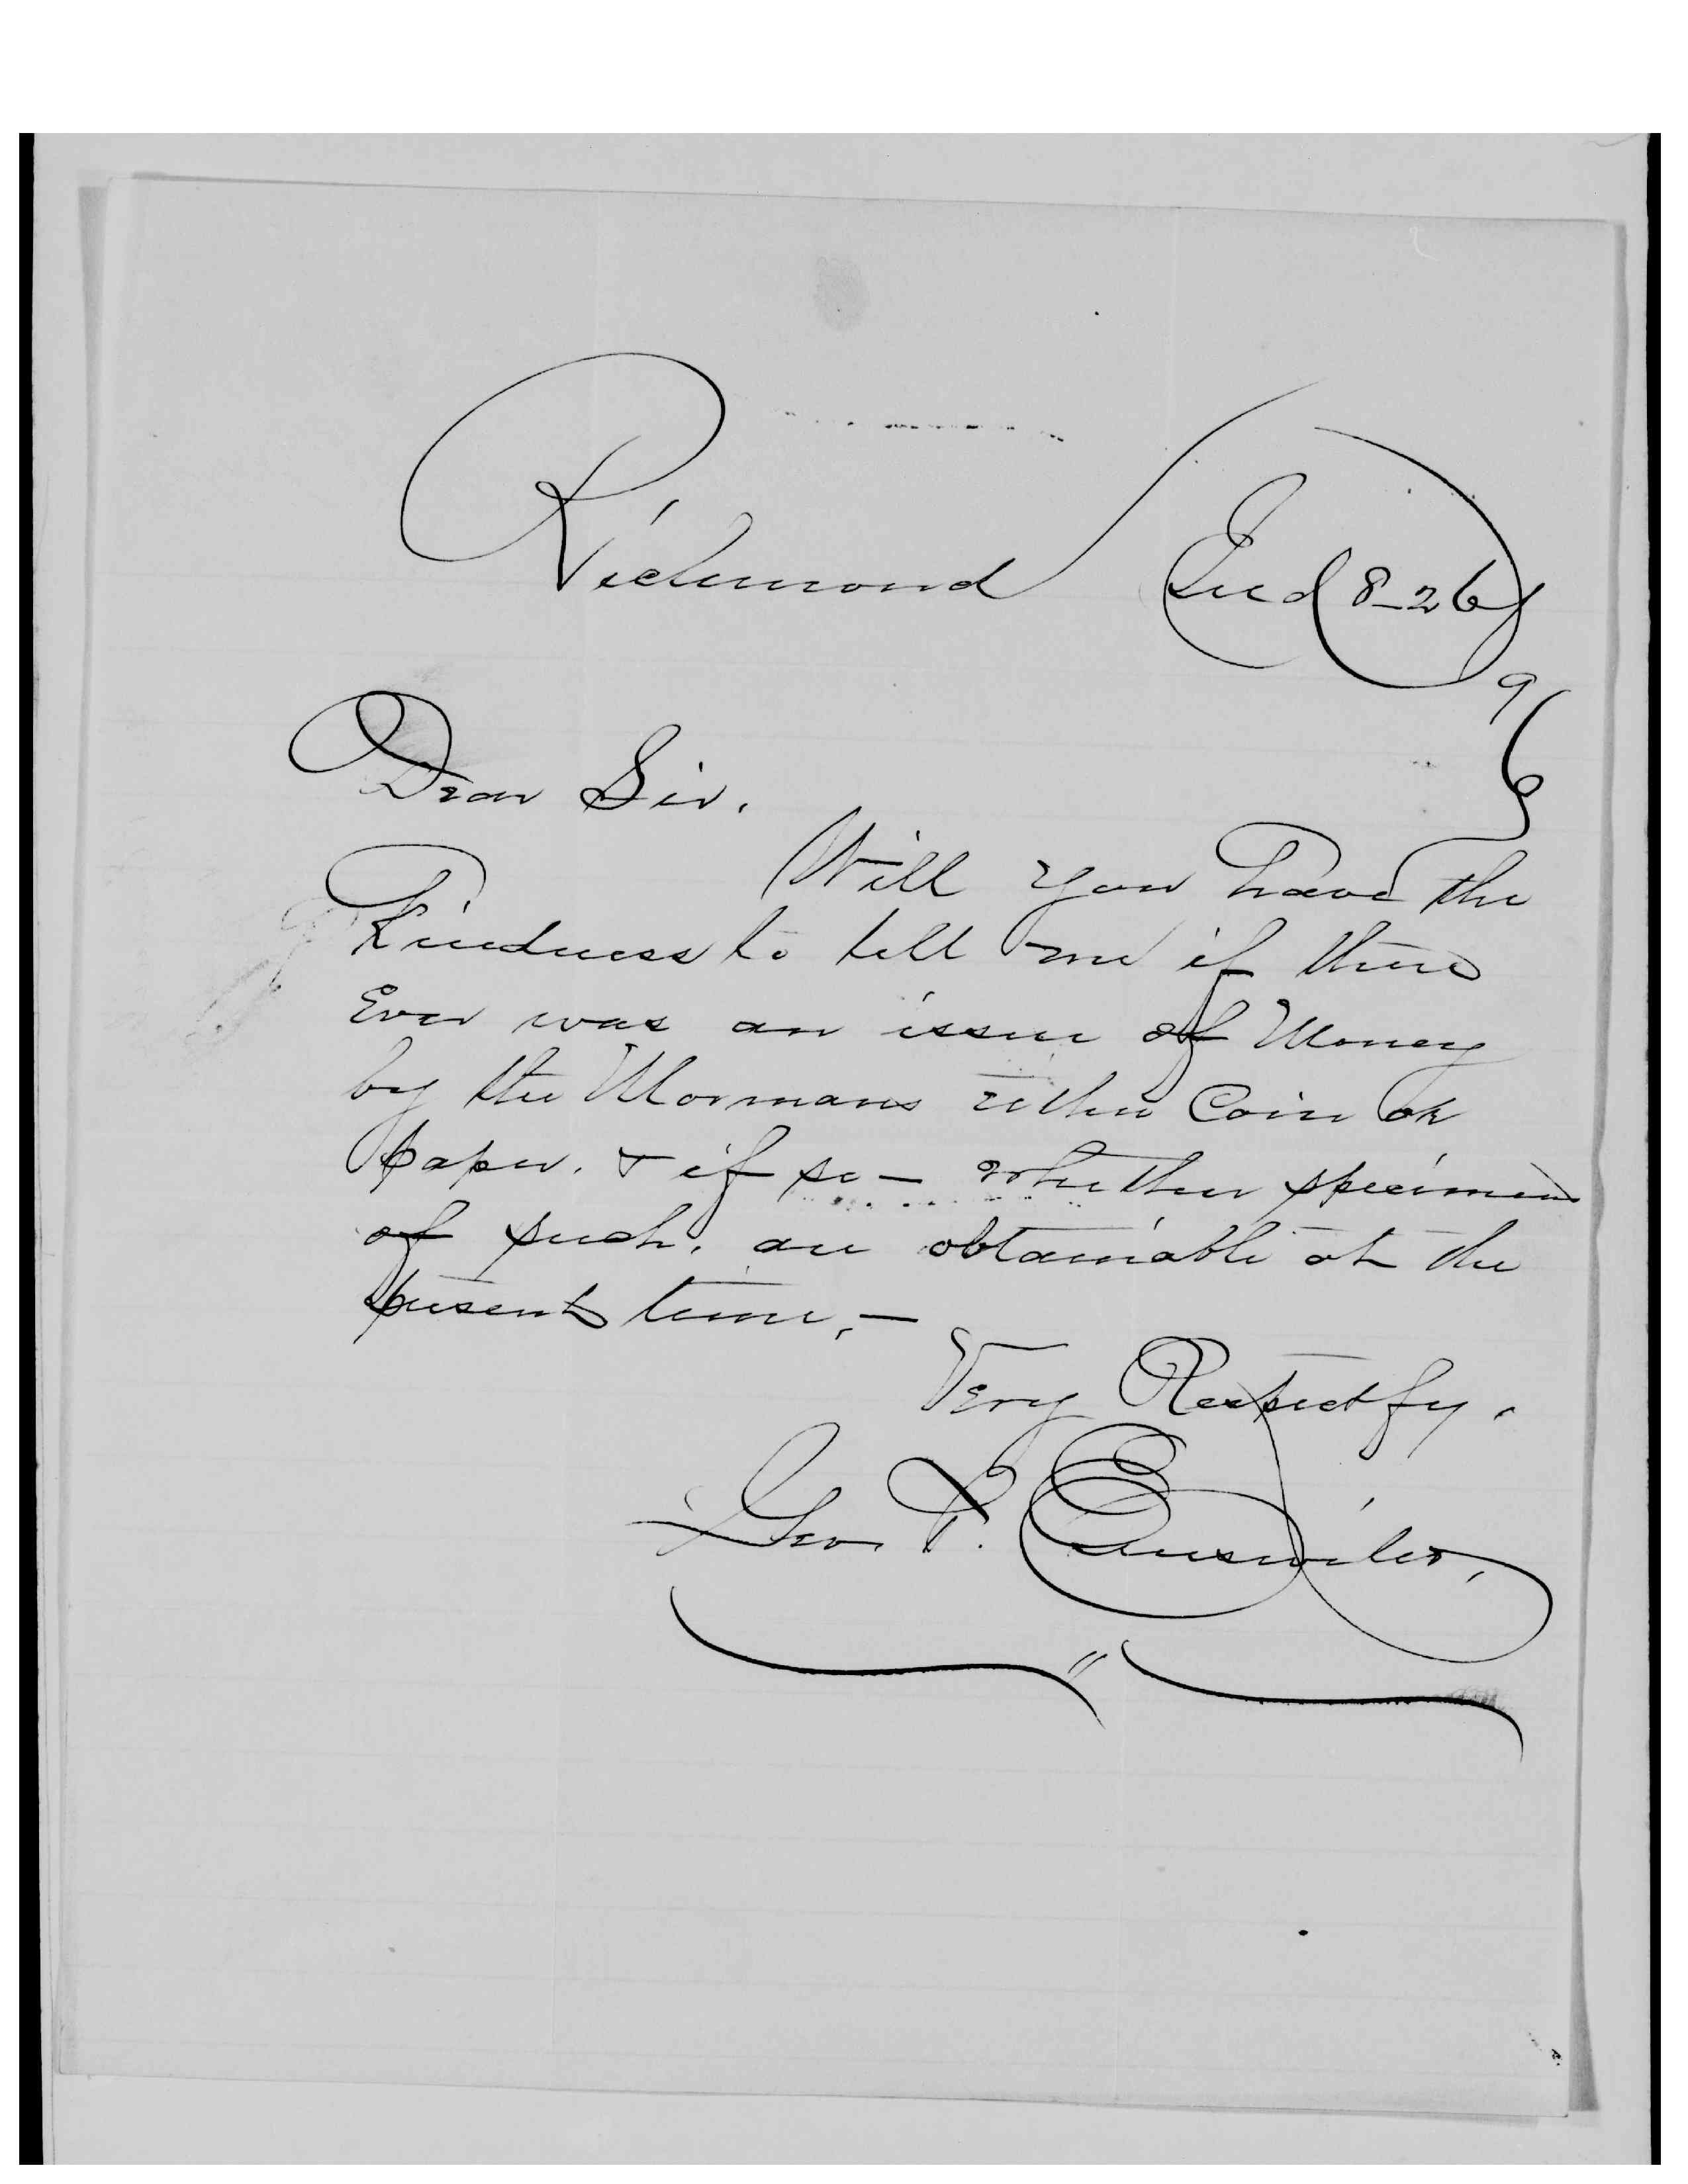 Richmond Ind 8-26
96
Dear Sir.
Will you have the
Kindness to tell me if there
Ever was an issue of Money
by the Mormans either Coin or
paper. & if so - whether specimens
of such. are obtainable at the
present time. -
Very Respectfy.
Geo. P. Emswiler.